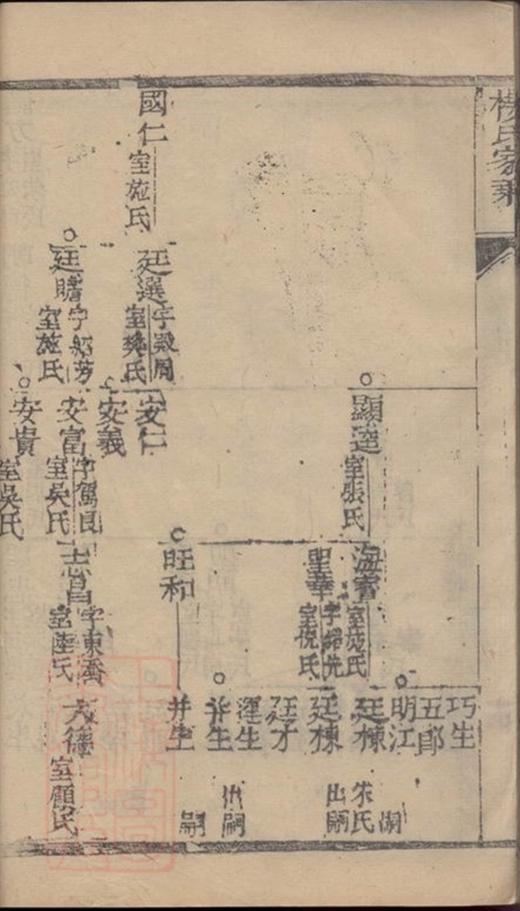 楊氏家乘
顯達 室張氏
海寶 室范氏
聖華 字紹先 室倪氏
旺和
巧生
五郎
明江 嗣
廷棟 宋氏
廷棟 出嗣
廷才
運生
並生 出嗣
并生 嗣
國仁 室施氏
廷選 字殿周 室樊氏
廷瞻 字紹芳 室施氏
安仁
安義
安富 字駕良 室吳氏
安貴 室吳氏
志昌 字東喬 室陸氏
室顧氏